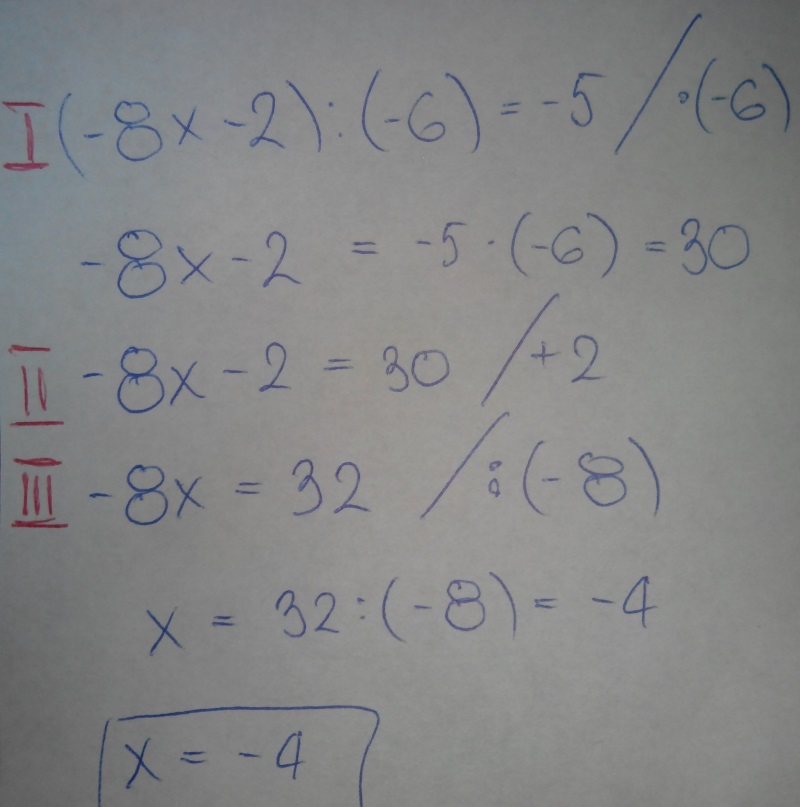 I (-8x-2):(-6) = -5 / ·(-6)
-8x-2 = -5·(-6) = 30
II -8x-2 = 30 /+2
III -8x = 32 / :(-8)
x = 32:(-8) = -4
x = -4